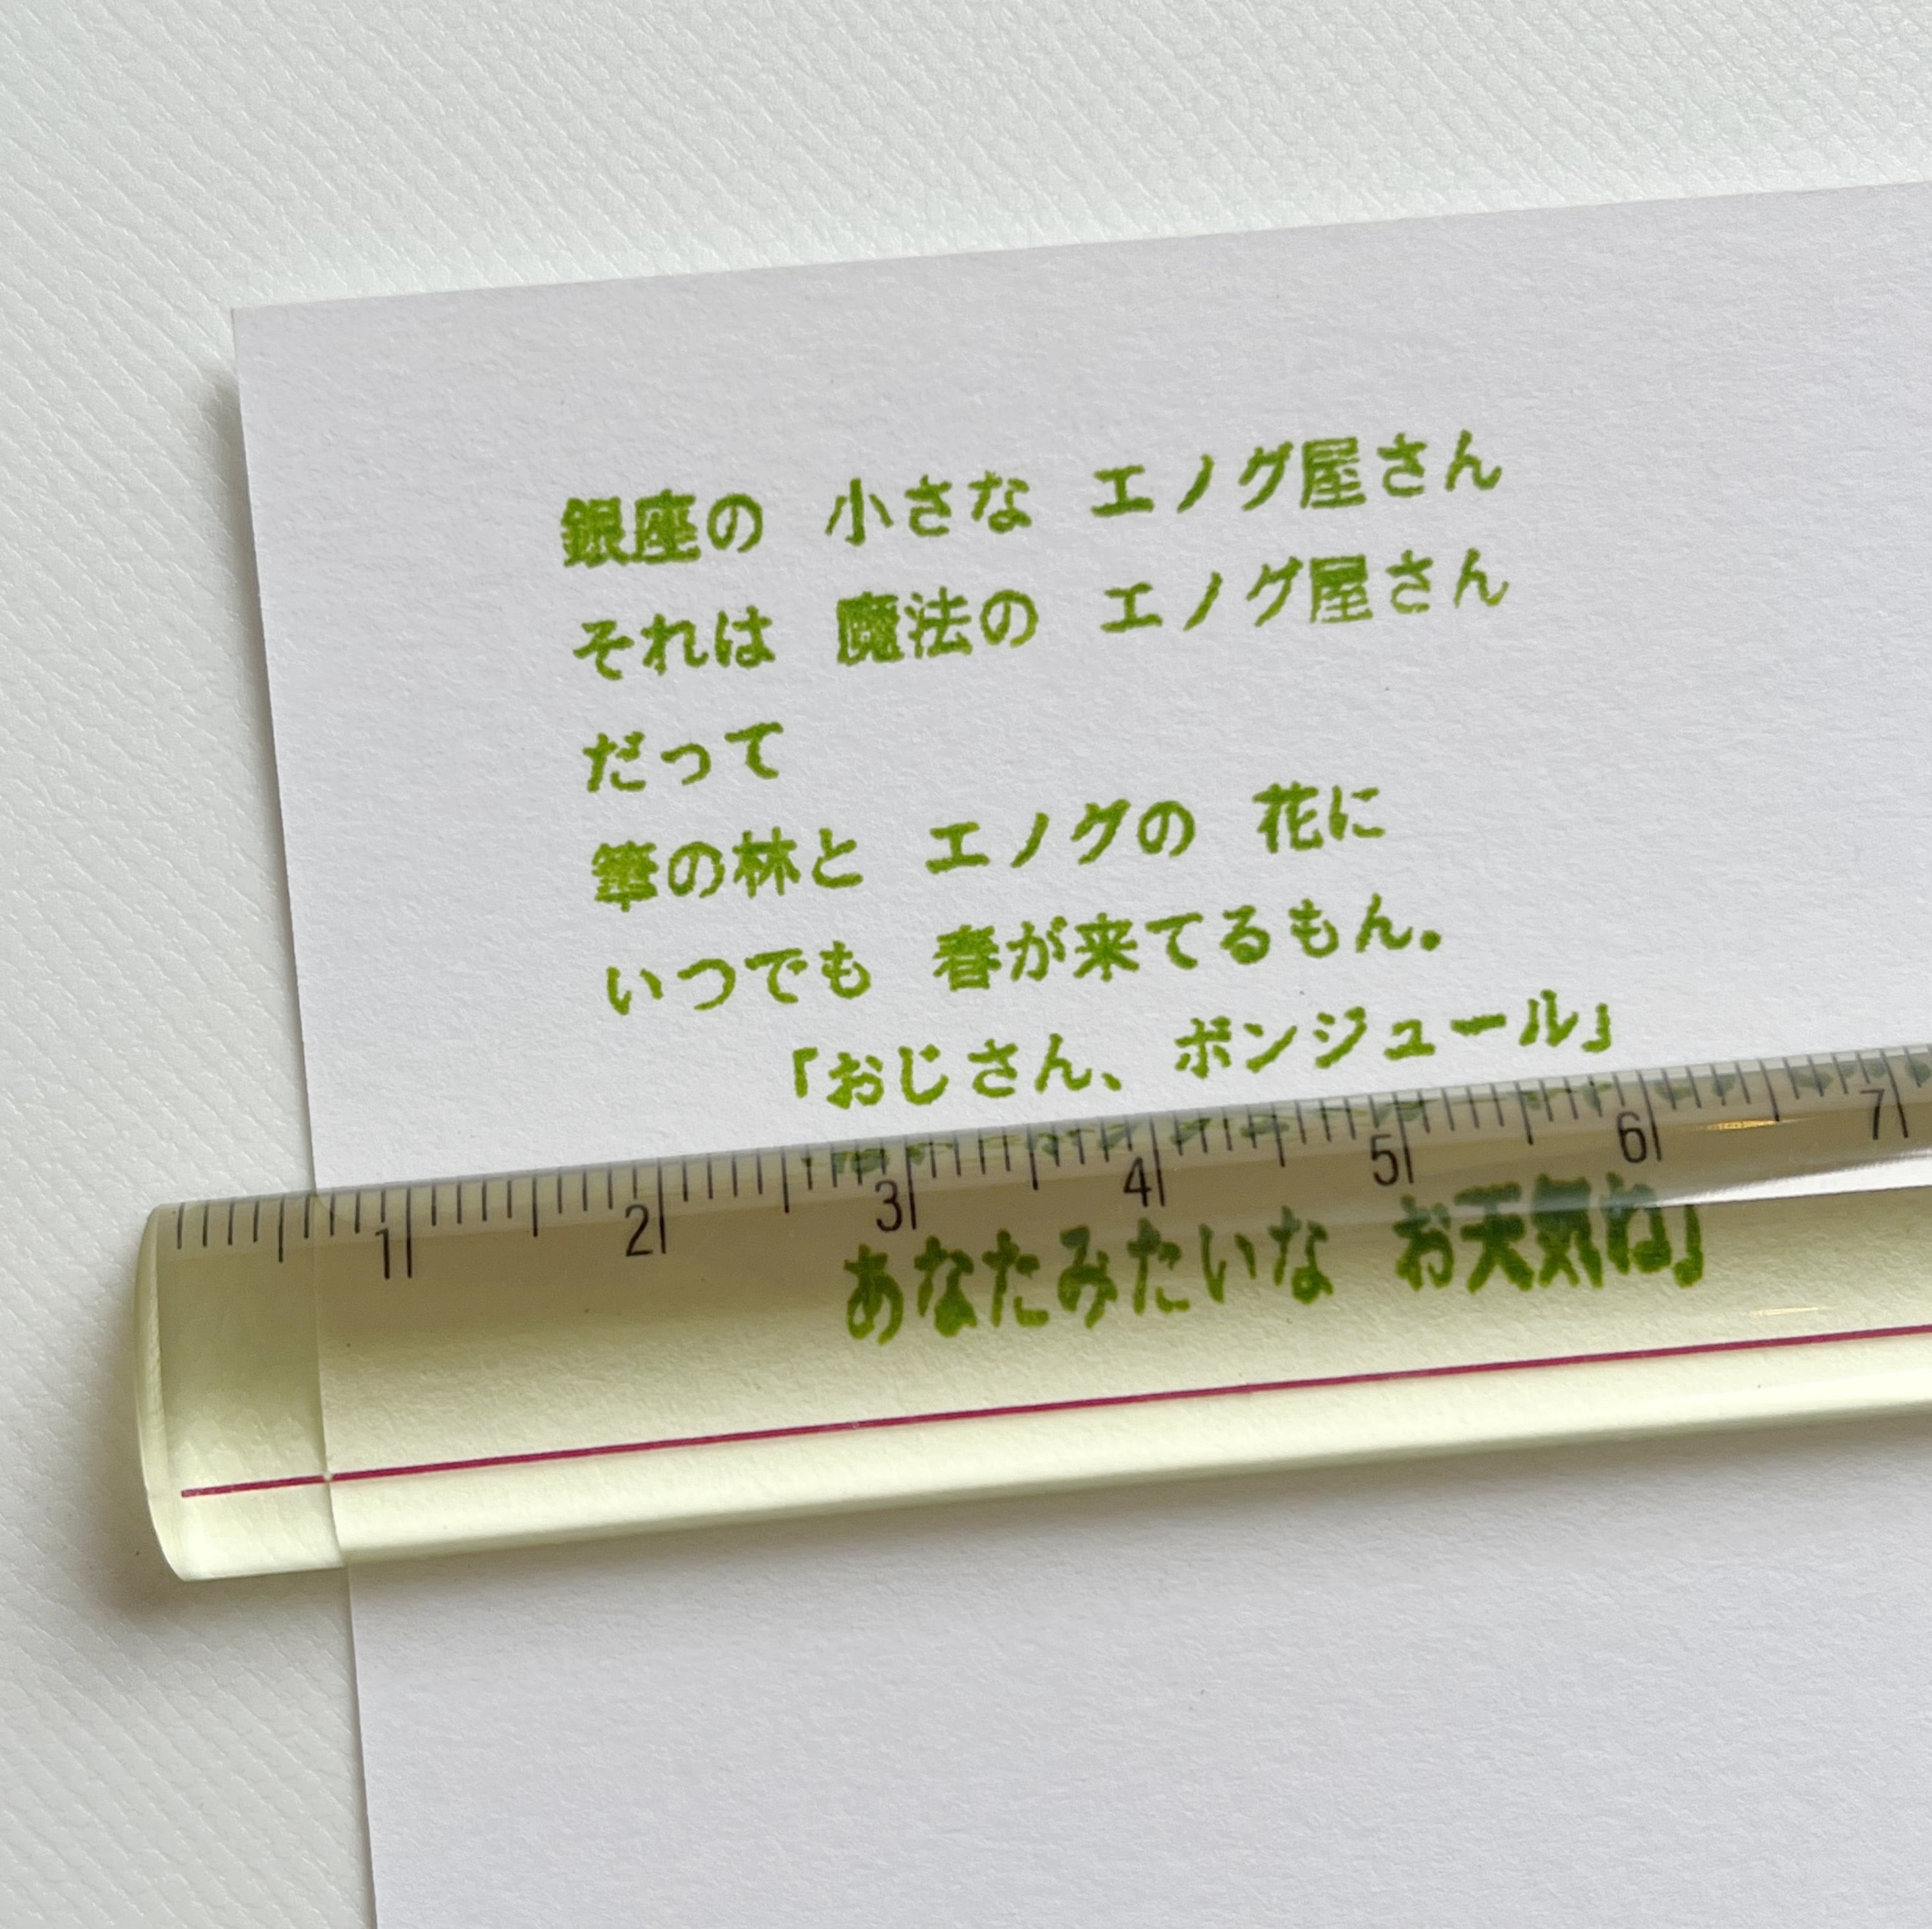 銀座の 小さな エノグ屋さん
それは 魔法の エノグ屋さん
だって
筆の林と エノグの 花に
いつでも 春が来てるもん。
「おじさん、ボンジュール」
1 2 3 4 5 6 7
あなたみたいな お天気ね」